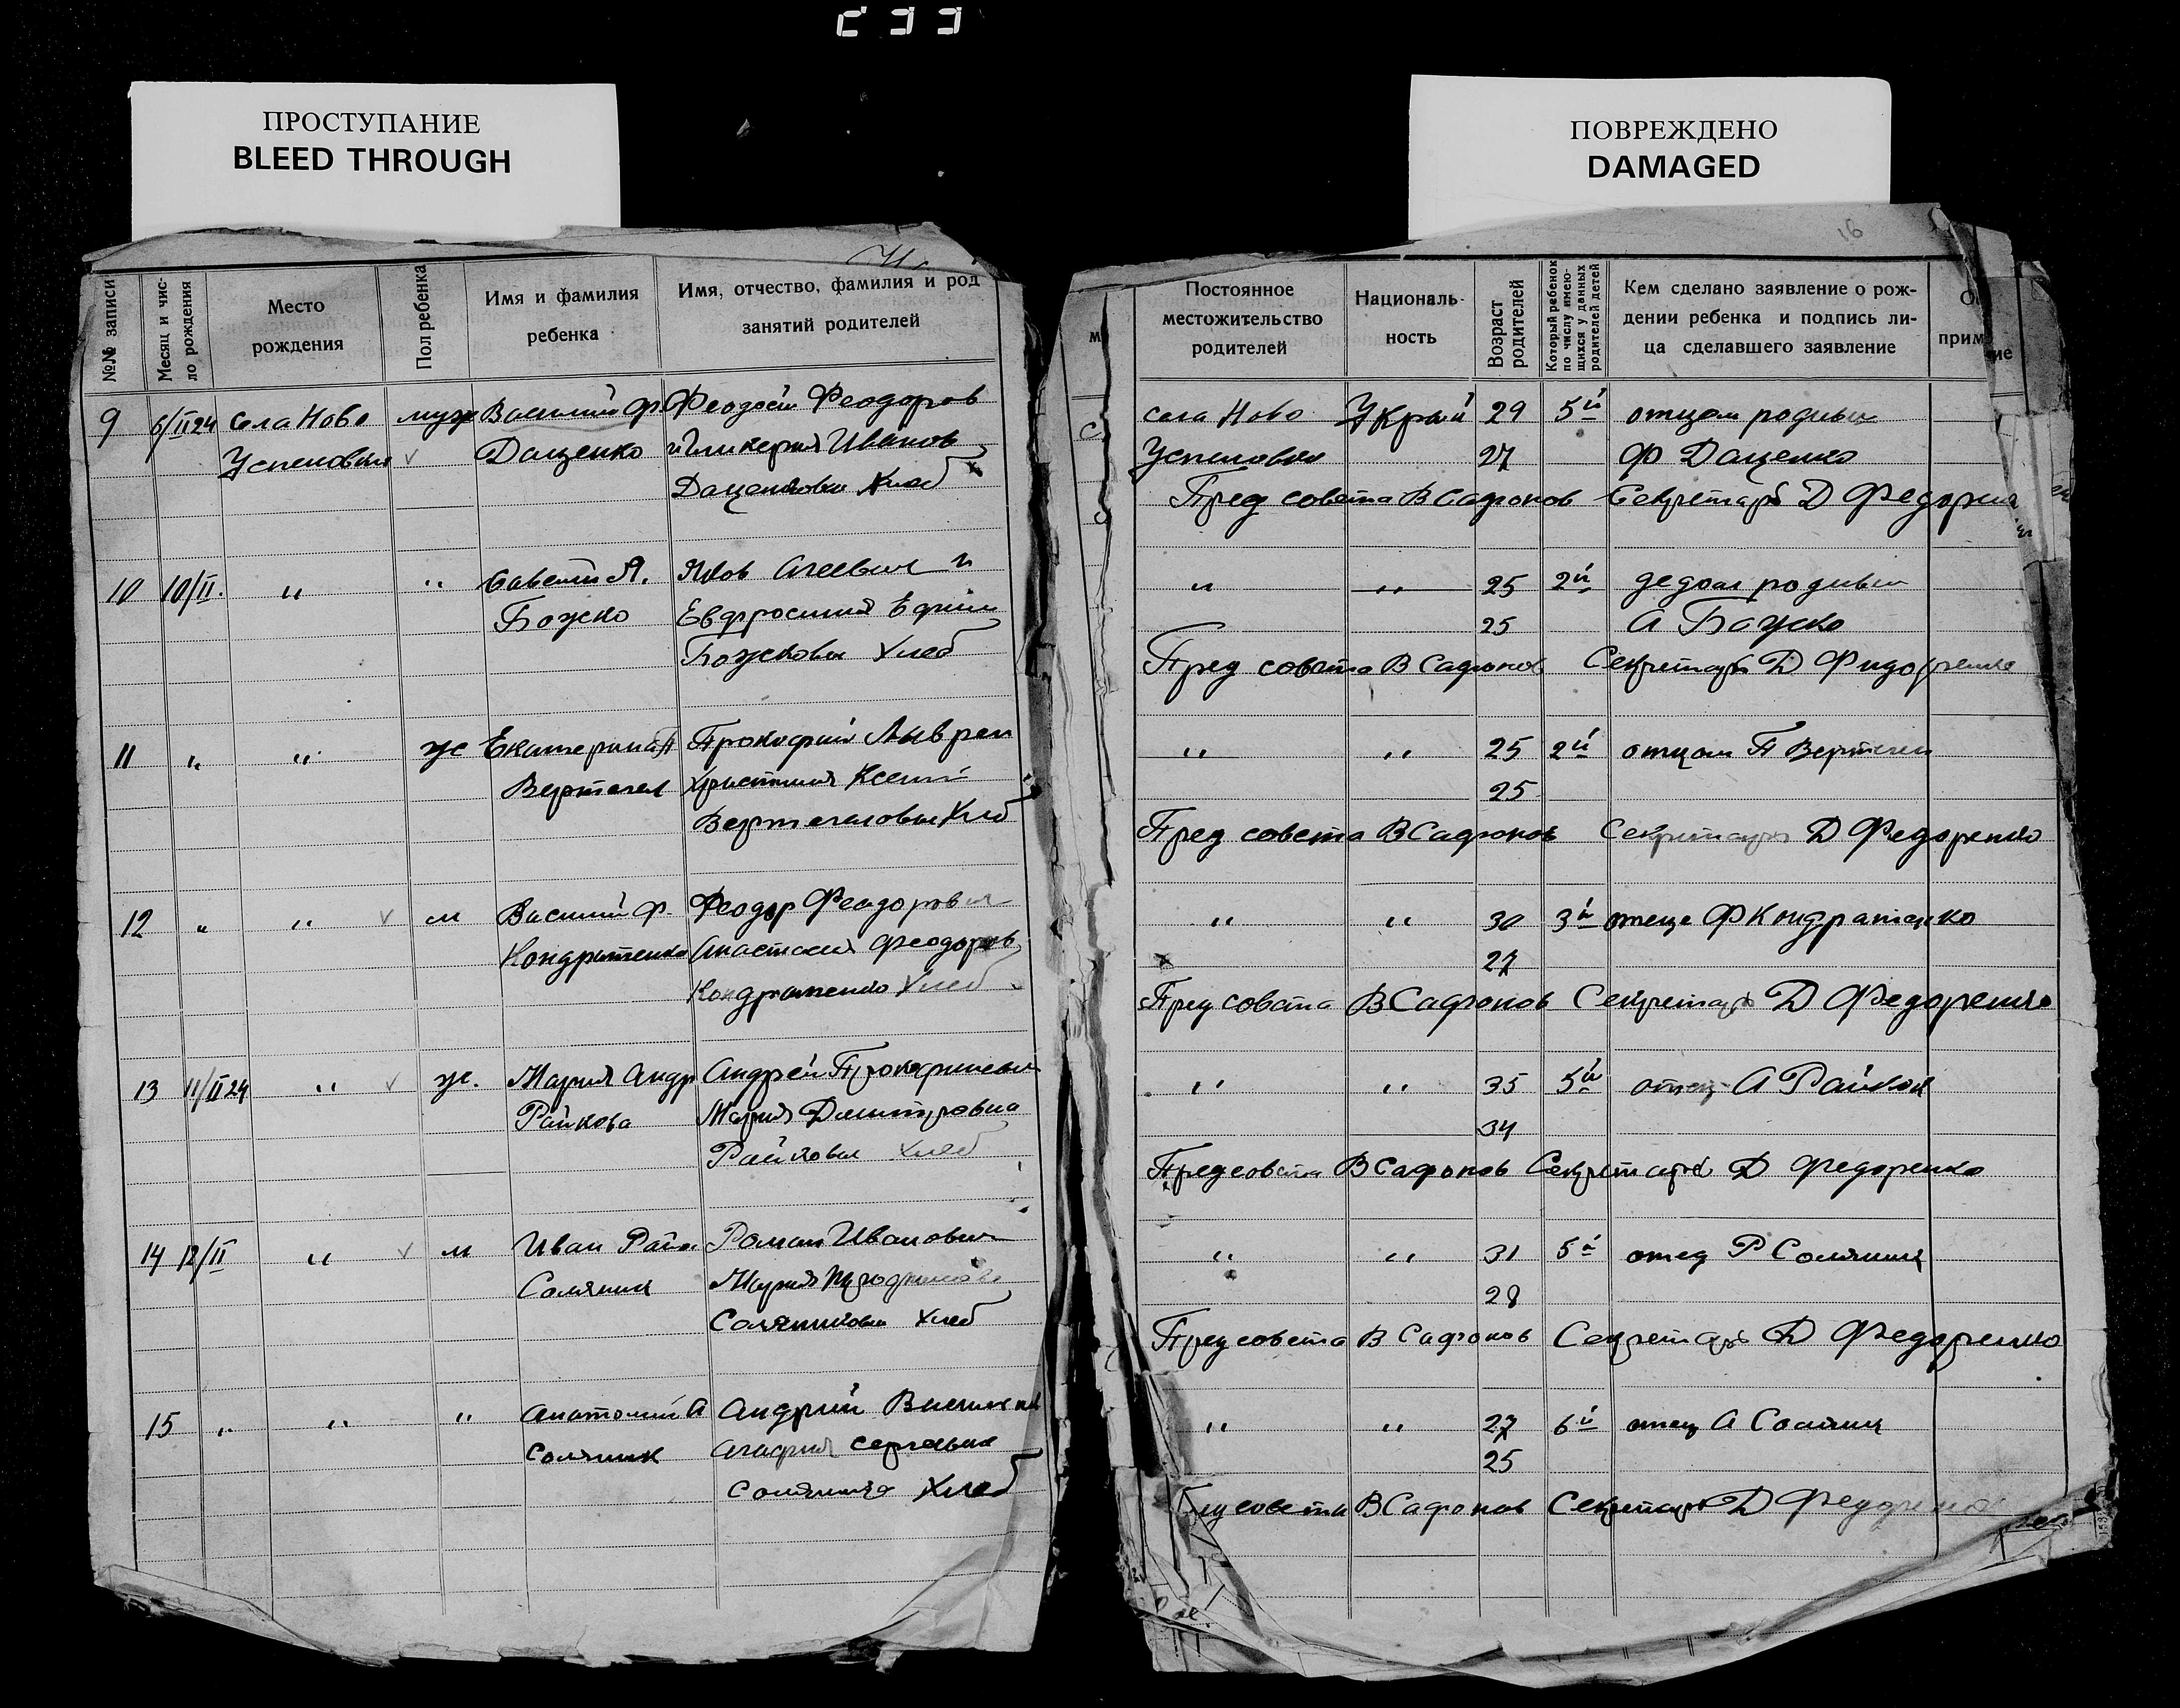 ПРОСТУПАНИЕ
BLEED THROUGH
ПОВРЕЖДЕНО
DAMAGED
16
№№ записи
Месяц и чис-
ло рождения
Место
рождения
Пол ребенка
Имя и фамилия
ребенка
Имя, отчество, фамилия и род
занятий родителей
Постоянное
местожительство
родителей
Националь-
ность
Возраст
родителей
Который ребенок
по числу имею-
щихся у данных
родителей детей
Кем сделано заявление о рож-
дении ребенка и подпись ли-
ца сделавшего заявление
прим
ие
9 6/II 24 села Ново муж Василий Ф. Феодосий Феодоров
Даценко и Гликерия Иванов
Даценковы Хлеб
села Ново Украй 29 5й отцом родным
27 Ф Даценко
Пред совета В Сафонов Секретарь Д
10 10/II. " " Савелий А. Яков и
Божко Евфросиния Ефим
Божковы Хлеб
" " 25 2й дедом родным
25 А Божко
Пред совета В Сафонов Секретарь Д
11 " " ж Екатерина П Прокофий Лаврен
Вертегел Христиния Ксени
Вертегеловы Хлеб
" " 25 2й отцом П
25
Пред совета В Сафонов Секретарь Д Федоренко
12 " " м Василий Ф. Феодор Феодорович
Кондратенко Анастасия Феодоров
Кондратенко Хлеб
" " 30 3й отец Ф Кондратенко
27
Пред совета В Сафонов Секретарь Д Федоренко
13 11/II 24 " ж. Мария Андр Андрей Прокофиевич
Райкова Мария Димитровна
Райковы Хлеб
" " 35 5й отец А Райков
34
Пред совета В Сафонов Секретарь Д Федоренко
14 12/II " м Иван Роман Иванович
Соляник Мария
Соляниковы Хлеб
" " 31 5й отец Р Соляник
28
Пред совета В Сафонов Секретарь Д Федоренко
15 " " " Анатолий А Андрий
Соляник Агафия
Хлеб
" " 27 6й отец А Соляник
25
совета В Сафонов Секретарь Д